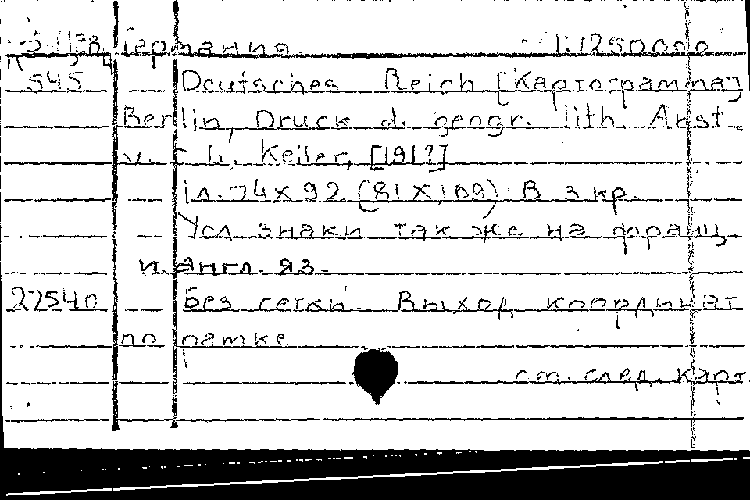 Германия 1:1250000
545 Deutsches Reich [Картограмма]
Berlin, Druck d. geogr. lith. Anst.
v. C. L. Keller, [191?]
1л. 74х92 (81х109) В 3 кр.
Усл знаки так же на франц.
и англ. яз.
22540 Без сетки. Выход координат
по рамке
см. след. карт.